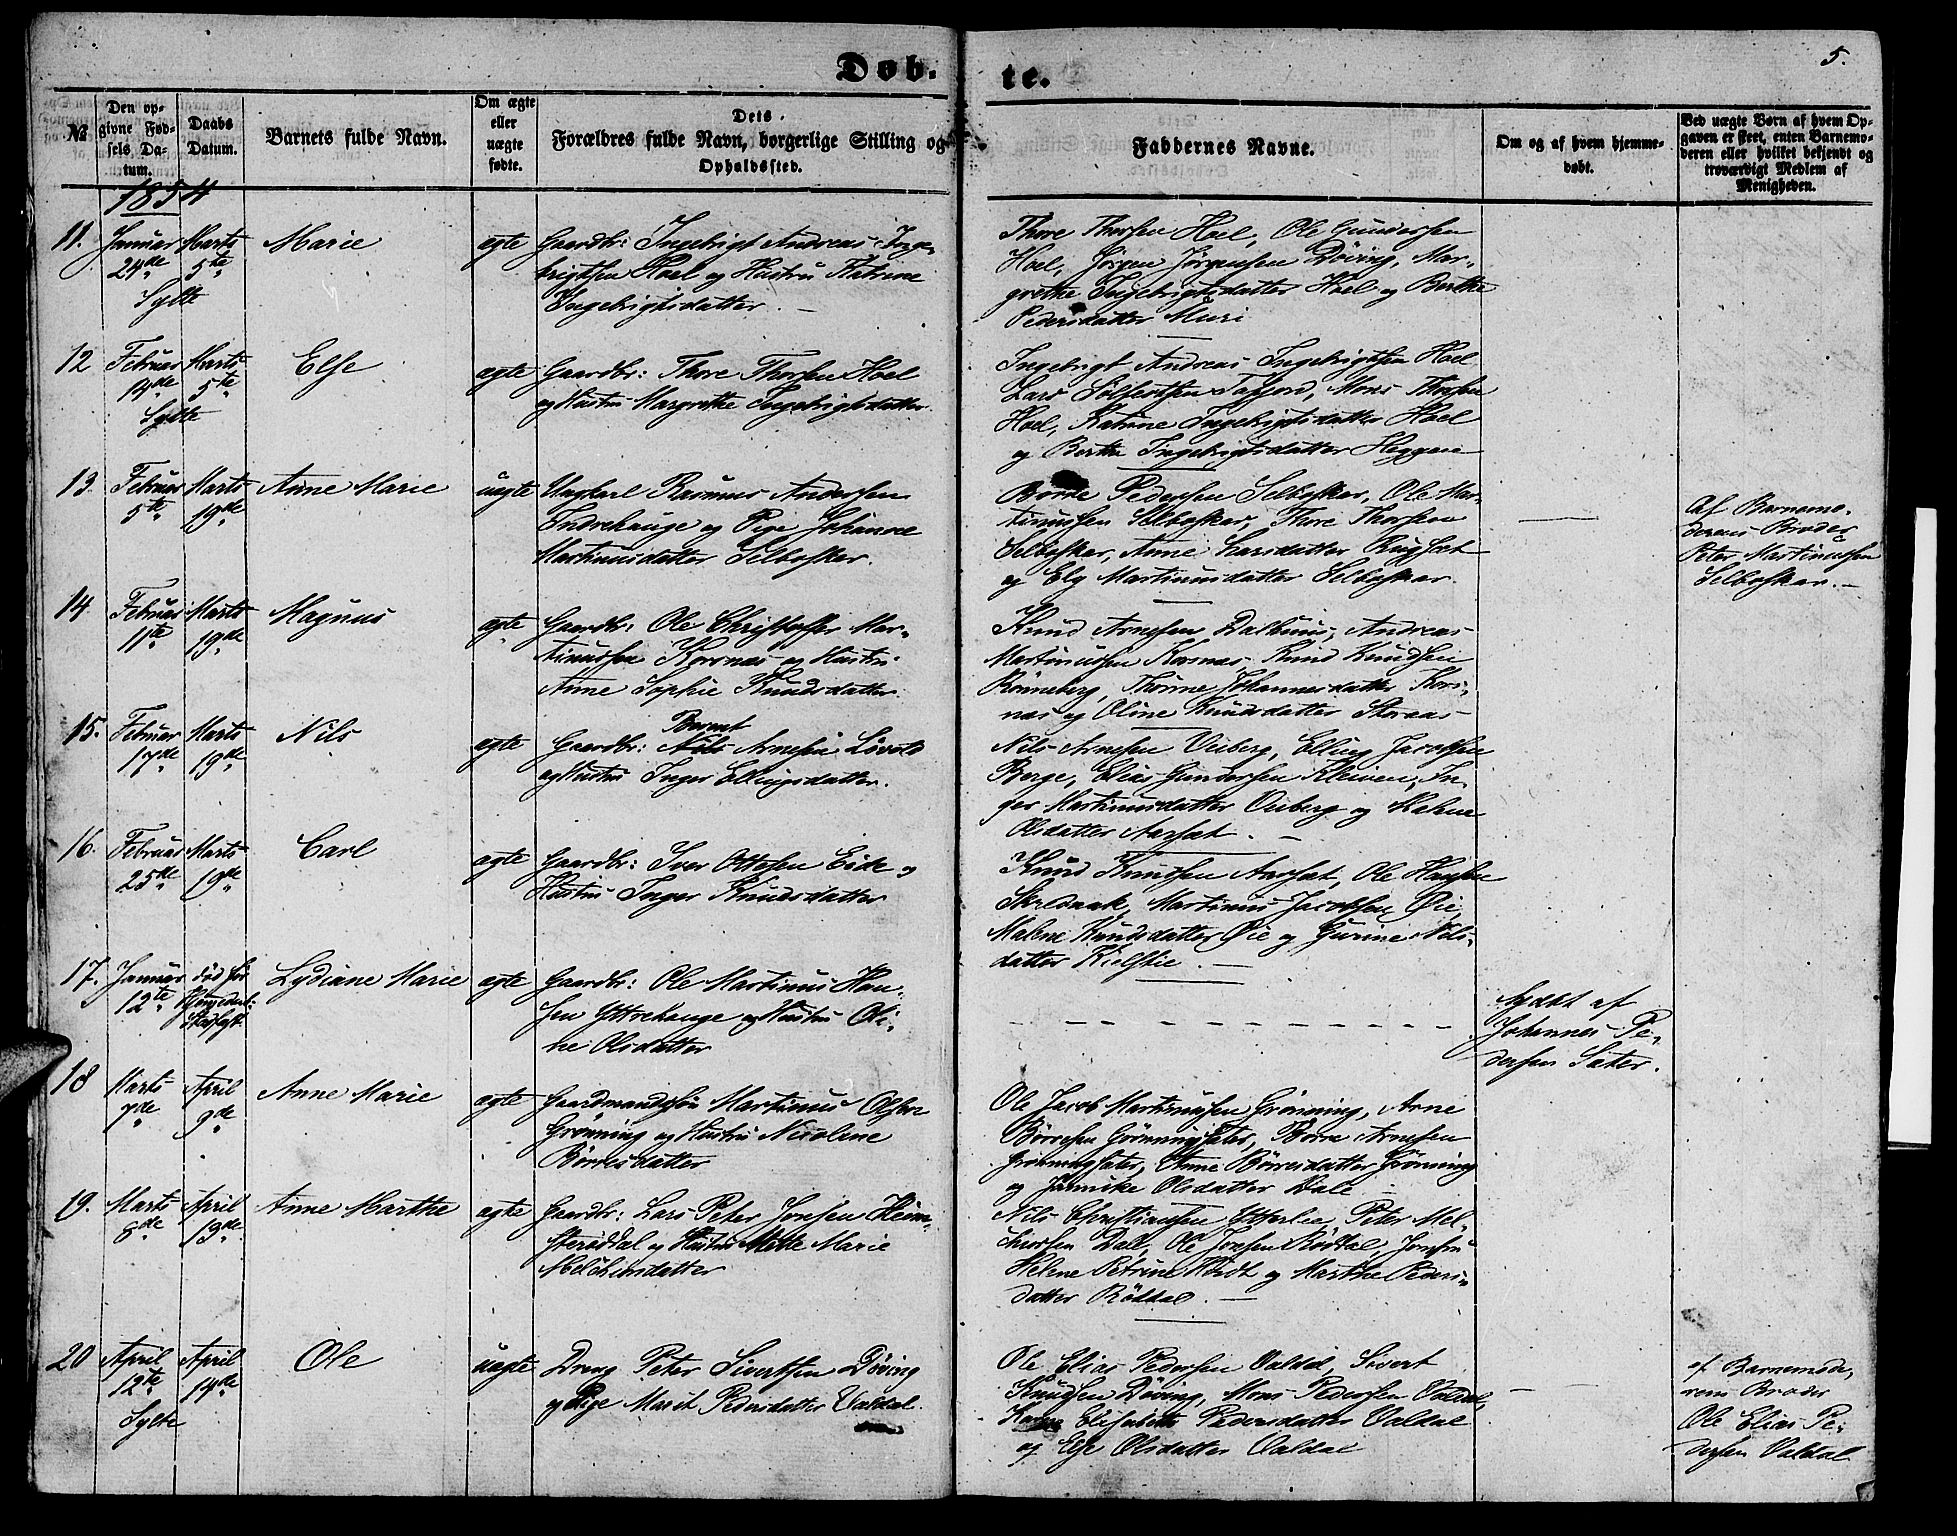 Døb-
te.
5.
№
Den op-
givne Fød-
sels Da-
tum.
Daabs
Datum.
Barnets fulde Navn.
Om ægte
eller
uægte
fødte.
Dets
Forældres fulde Navn, borgerlige Stilling og
Opholdssted.
Faddernes Navne.
Om og af hvem hjemme-
døbt.
Ved uægte Børn af hvem Op-
gaven er skeet, enten Barnemo-
deren eller hvilket bekjendt og
troværdigt Medlem af
Menigheden.
1854
11.
Januar
24de
Sylte
Marts
5te
Marie
ægte
Gaardbr: Ingebrigt Andreas Inge-
brigtsen Hoel og Hustru Katrine
Ingebrigtsdatter. —
Thore Thorsen Hoel, Ole Gundersen
Hoel, Jørgen Jørgensen Døving, Mar-
grethe Ingebrigtsdatter Hoel og Berthe
Pedersdatter Muri
12
Februar
14de
Sylte
Marts
5te
Else
ægte
Gaardbr: Thore Thorsen Hoel
og Hustru Margrethe Ingebrigtsdatter
Ingebrigt Andreas Ingebrigtsen Hoel
Lars Tafjord, Mons Thorsen
Hoel, Katrine Ingebrigtsdatter Hoel
og Berthe Ingebrigtsdatter Heggen
13.
Februar
5te
Marts
19de
Anne Marie
uægte
Ungkarl Rasmus Andersen
Indrehauge og Pige Johanne
Martinusdatter Selboskar.
Børre Pedersen Selboskar, Ole Mar-
tinussen Selboskar, Thore Thorsen
Selboskar, Anne Larsdatter
og Ely Martinusdatter Selboskar.
Af Barnemo-
derens Broder
Peter Martinussen
Selboskar. —
14.
Februar
11te
Marts
19de
Magnus
ægte
Gaardbr: Ole Christoffer Mar-
tinussen Korsnæs og Hustru
Anne Sophie Knudsdatter.
Knud Arnesen Dalhuus, Andreas
Martinussen Korsnæs Knud Knudsen
Rønneberg, Thorine Johannesdatter Kors-
næs og Oline Knudsdatter Storaas
15.
Februar
17de
Marts
19de
Nils
ægte
Gaardbr: Nils Arnesen Løvold
og Hustru Inger Ellingsdatter.
Nils Arnesen Viiberg, Elling Jacobsen
Berge, Elias Gundersen Kleiven, In-
ger Martinusdatter Viiberg og Malene
Olsdatter Aarset. —
16.
Februar
25de
Marts
19de
Carl
ægte
Gaardbr: Iver Ottesen Eide og
Hustru Inger Knudsdatter
Knud Knudsen Aarset, Ole Hansen
Skrednak, Martinus Jacobsen Øie,
Malene Knudsdatter Øie og Gurine Nils-
datter Kielstie. —
17.
Januar
12te
død før
Lydiane Marie
ægte
Gaardbr: Ole Martinus Han-
sen Yttrehauge og Hustru Oli-
ne Olsdatter
døbt af
Johannes Pe-
dersen Sæter.
18
Marts
7de
April
9de
Anne Marie
ægte
Gaardmandssøn Martinus Olsen
Grønning og Hustru Nicoline
Børresdatter
Ole Jacob Martinussen Grønning, Arne
Børresen Grønningsæter, Børre Arnesen
Grønningsæter, Anne Børresdatter Grønning
og Jannike Olsdatter Dale
19.
Marts
8de
April
13de
Anne Marthe
ægte
Gaardbr: Lars Peter Jonsen Heim-
og Hustru Mette Marie
Melchiorsdatter
Nils Christiansen Ytterlie, Peter Mel-
chiorsen Dale, Ole Jonsen Røddal, Jomfru
Helene Petrine Hardt og Marthe Peders-
datter Røddal. —
20
April
12te
Sylte
April
14de
Ole
uægte
Dreng Peter Sivertsen Døving
og Pige Marit Pedersdatter Valdal.
Ole Elias Pedersen Valdal, Sivert
Knudsen Døving, Mons Pedersen Valdal,
Karen Elisabeth Pedersdatter Valdal
og Else Olsdatter Valdal
af Barnemode-
rens Broder
Ole Elias Pe-
dersen Valdal